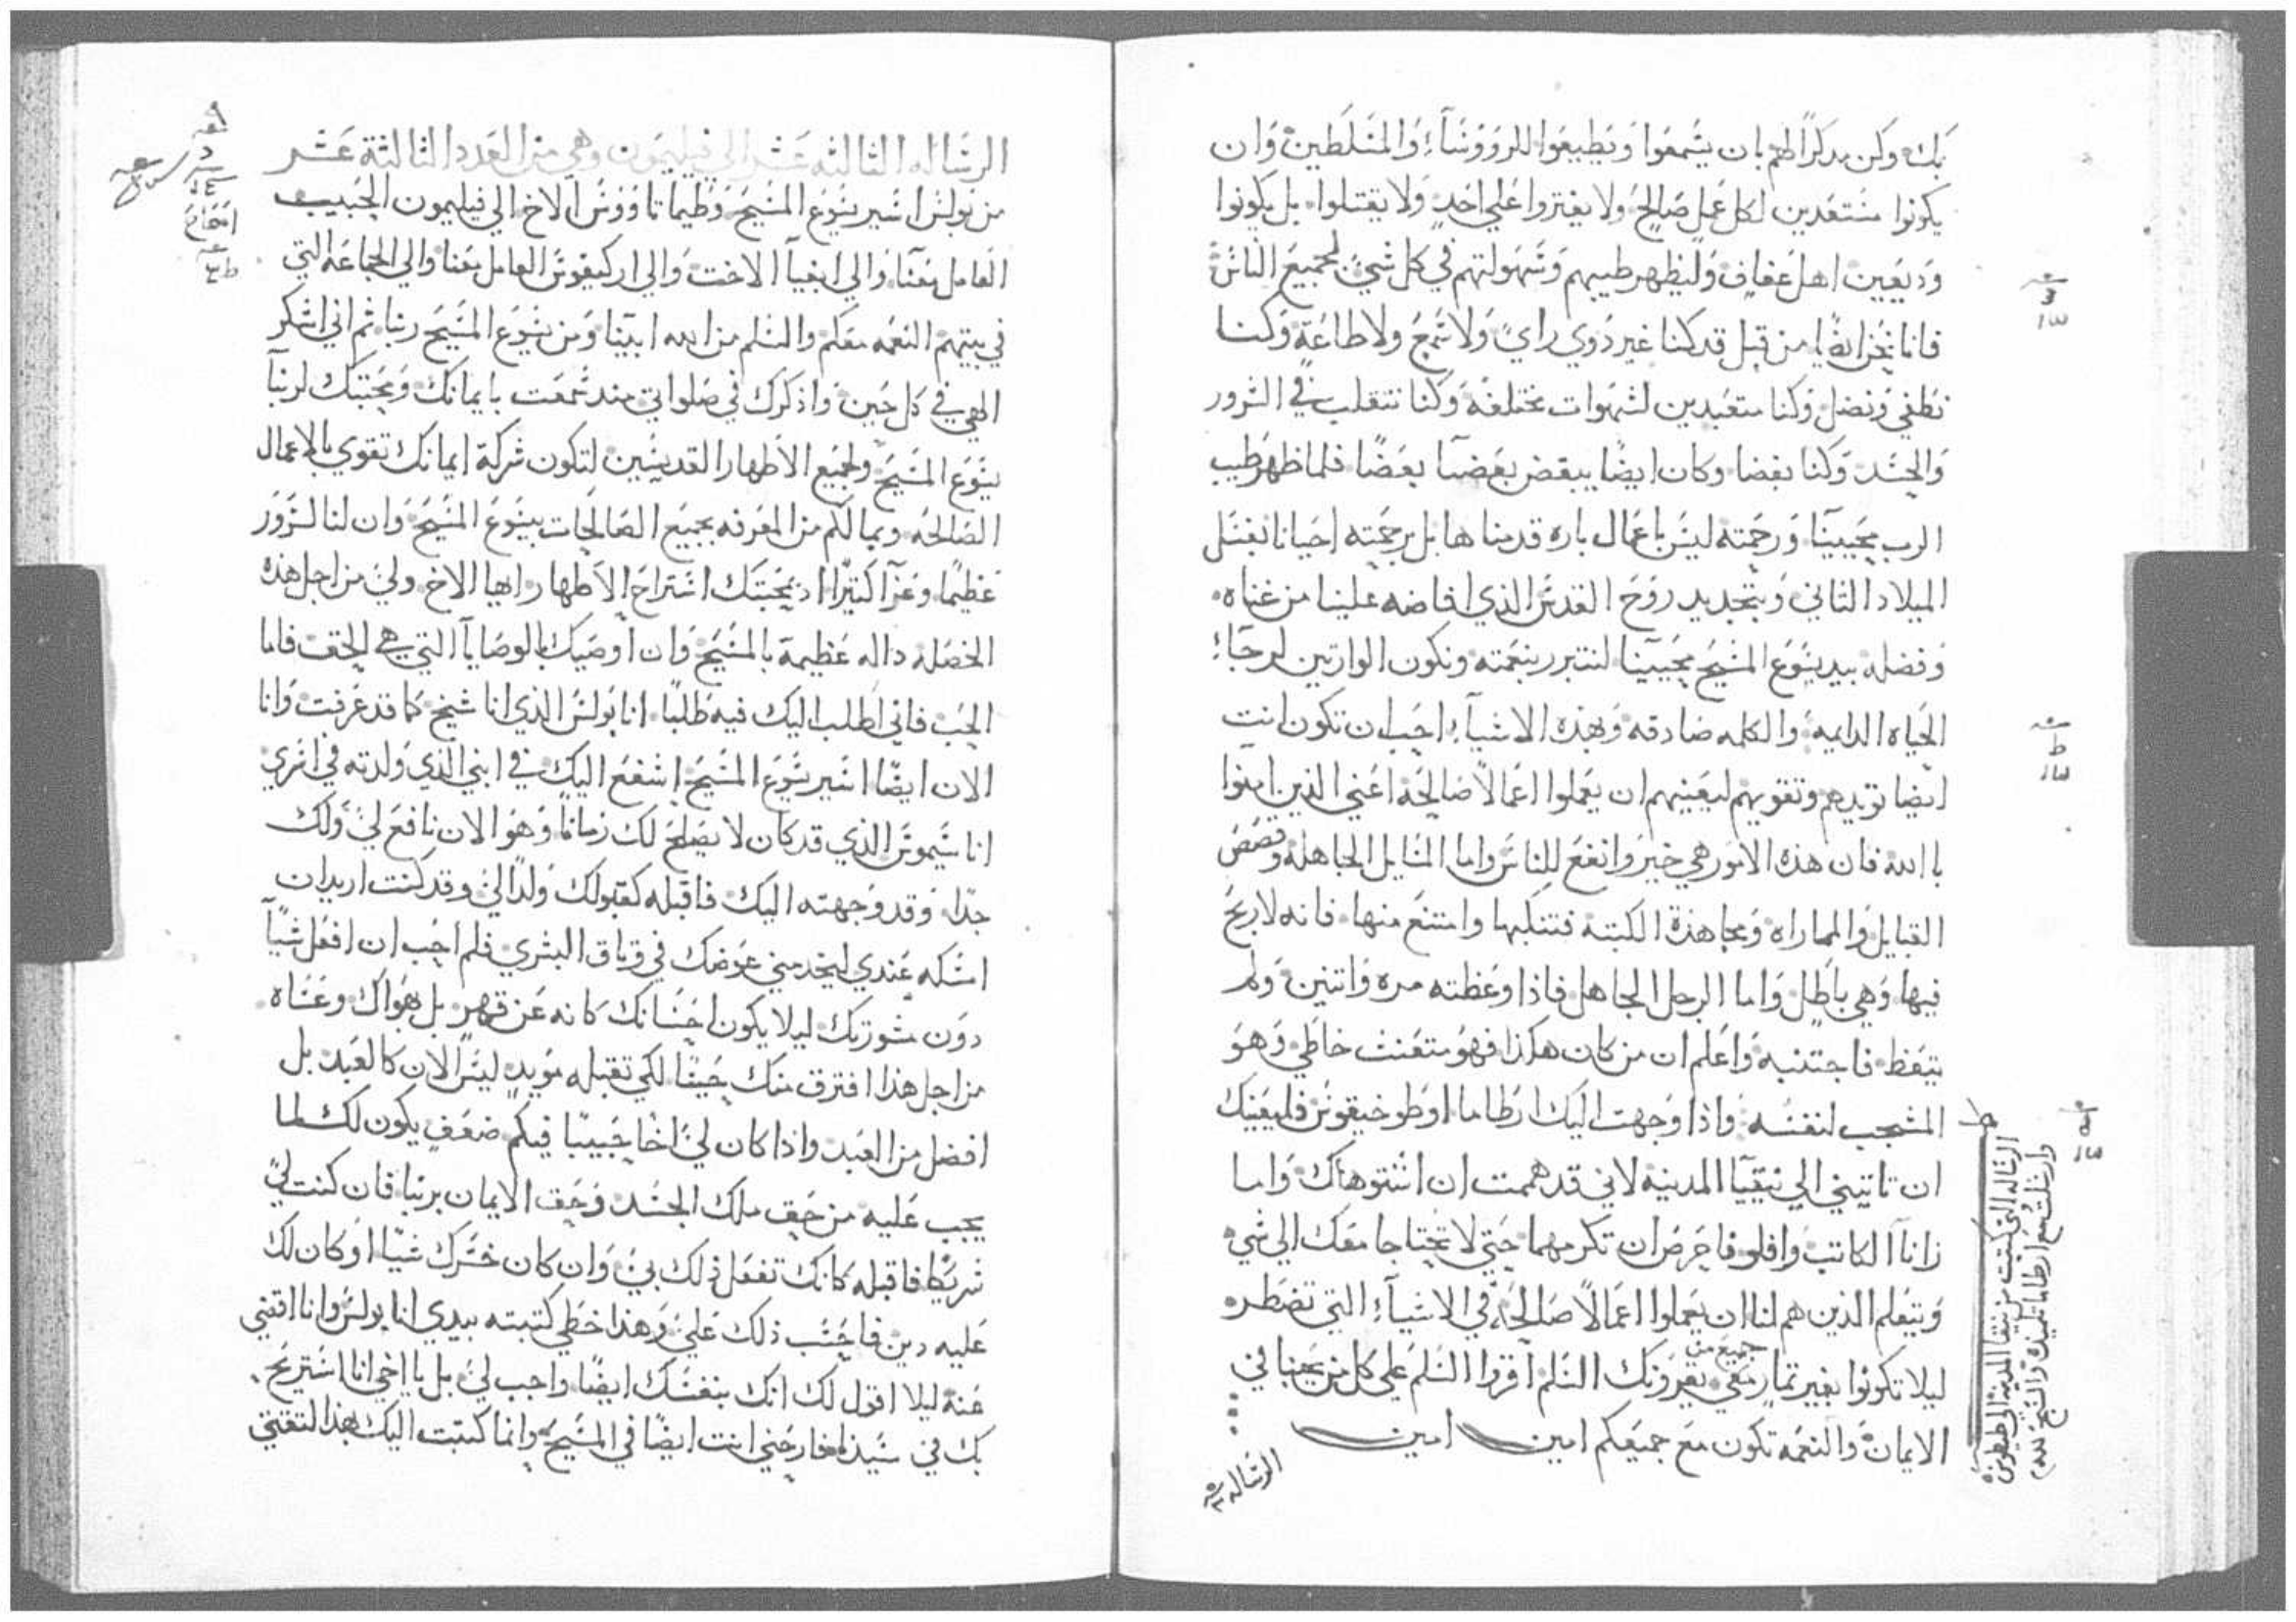 بك وكن مدكرًا لهم بان يسمعوا ويطيعوا للروؤسآء والمسلطين وان
يكونوا مستعدين لكل عمل صالح ولا يفتروا علي احدٍ ولا يقتتلوا بل يكونوا
وديعين اهل عفاف وليظهر طيبهم وسهولتهم في كل شيٍ لجميع الناس
فانا نحن ايضًا من قبل قد كنا غير ذوي راي ولا سمع ولا طاعة وكنا
نطغي ونضل وكنا متعبدين لشهوات مختلفه وكنا نتقلب في الشرور
والحسد وكنا بغضا وكان ايضًا يبغض بعضنا بعضًا فلما ظهر طيب
الرب محيينا ورحمته ليس باعمال باره قدمناها بل برحمته احيانا بغسل
الميلاد الثاني وبتجديد روح القدس الذي افاضه علينا من غناه
وفضله بيد يسوع المسيح محيينا لنتبرر بنعمته ونكون الوارتين لرجآء
الحياه الدايمه والكلمه صادقه وبهذه الاشيآء احب ان تكون انت
ايضا توبدهم وتقويهم ليعنيهم ان يعملوا اعمالاً صالحة اعني الذين امنوا
باالله فان هذه الامور هي خير وانفع للناس واما المسايل الجاهله وقصص
القبايل والمماراه ومجاهدة الكتبة فتنكبها وامتنع منها فانه لا ربح
فيها وهي باطل واما الرجل الجاهل فاذا وعظته مره واتنين ولم
يتعظ فاجتنبه واعلم ان من كان هكذا فهو متعنث خاطي وهو
المشجب لنفسه واذا وجهت اليك ارطاما او طوخيقوس فليعنيك
ان تاتيني الي نيقيا المدينه لاني قد هممت ان اشتوا هناك واما
زانا الكاتب وافلو فاحرص ان تكرمهما حتي لا يحتاجا معك الي شي
ويتعلم الذين هم لنا ان يعملوا اعمالاً صالحة في الاشيآء التي تضطره
ليلا تكونوا بغير تمار جميع من معي يقروونك السلم اقروا السلم علي كل من يحبنا في
الايمان والنعمه تكون مع جميعكم امين امين
الرساله التي كتبت من نيقيا المدينه الي طيطوس
وارسلت مع ارطاما تلميذه
الرساله
الرساله الثالثه عشر الي فيليمون وهي من العدد الثالثة عشر
من بولس اسير يسوع المسيح وطيماتاووس الاخ الي فيليمون الحبيب
العامل معنا والي ابفيآ الاخت والي اركيفوس العامل معنا والي الجماعه التي
في بيتهم النعمه معكم والسلم من الله ابينا ومن يسوع المسيح ربنا ثم اني اشكر
الهي في كل حين واذكرك في صلواتي منذ سمعت بايمانك ومحبتك لربنآ
يسوع المسيح ولجميع الاطهار القديسين لتكون شركة ايمانك تقوي بالاعمال
الصالحه وبما لكم من المعرفه بجميع الصالحات بيسوع المسيح وان لنا لسرور
عظيمًا وعزآ كتيرًا اذ بمحبتك استراح الاطهار ايها الاخ ولي من اجل هذه
الخصله داله عظيمة بالمسيح وان اوصيك بالوصايآ التي هي الحق فاما
الحب فاني اطلب اليك فيه طلبًا انا بولس الذي انا شيخ كما قد عرفت وانا
الان ايضًا اسير يسوع المسيح اشفع اليك في ابني الذي ولدته في اسري
اناسيموس الذي قد كان لا يصلح لك زمانًا وهو الان نافع لي ولك
جدًا وقد وجهته اليك فاقبله كقبولك ولدًا لي وقد كنت اريد ان
امسكه عندي ليخدمني عوضك في وتاق البشري فلم احب ان افعل شيآ
دون مشورتك ليلا يكون احسانك كانه عن قهرٍ بل بهواك وعساه
من اجل هذا افترق منك حينًا لكي تقبله موبدٍ ليس الان كالعبد بل
افضل من العبد واذا كان لي اخًا حبيبًا فيكم ضعف يكون لك لما
يجب عليه من حق ملك الجسد وحق الايمان بربنا فان كنت لي
شريكا فاقبله كانك تفعل ذلك بي وان كان خسرك شيًا او كان لك
عليه دين فاحسب ذلك علي وهذا خطي كتبته بيدي انا بولس وانا اقضي
عنه ليلا اقول لك انك بنفسك ايضًا واجب لي بل يا اخي انا استريح
بك في سيدنا فارحني انت ايضًا في المسيح وانما كتبت اليك بهذا لتقتي